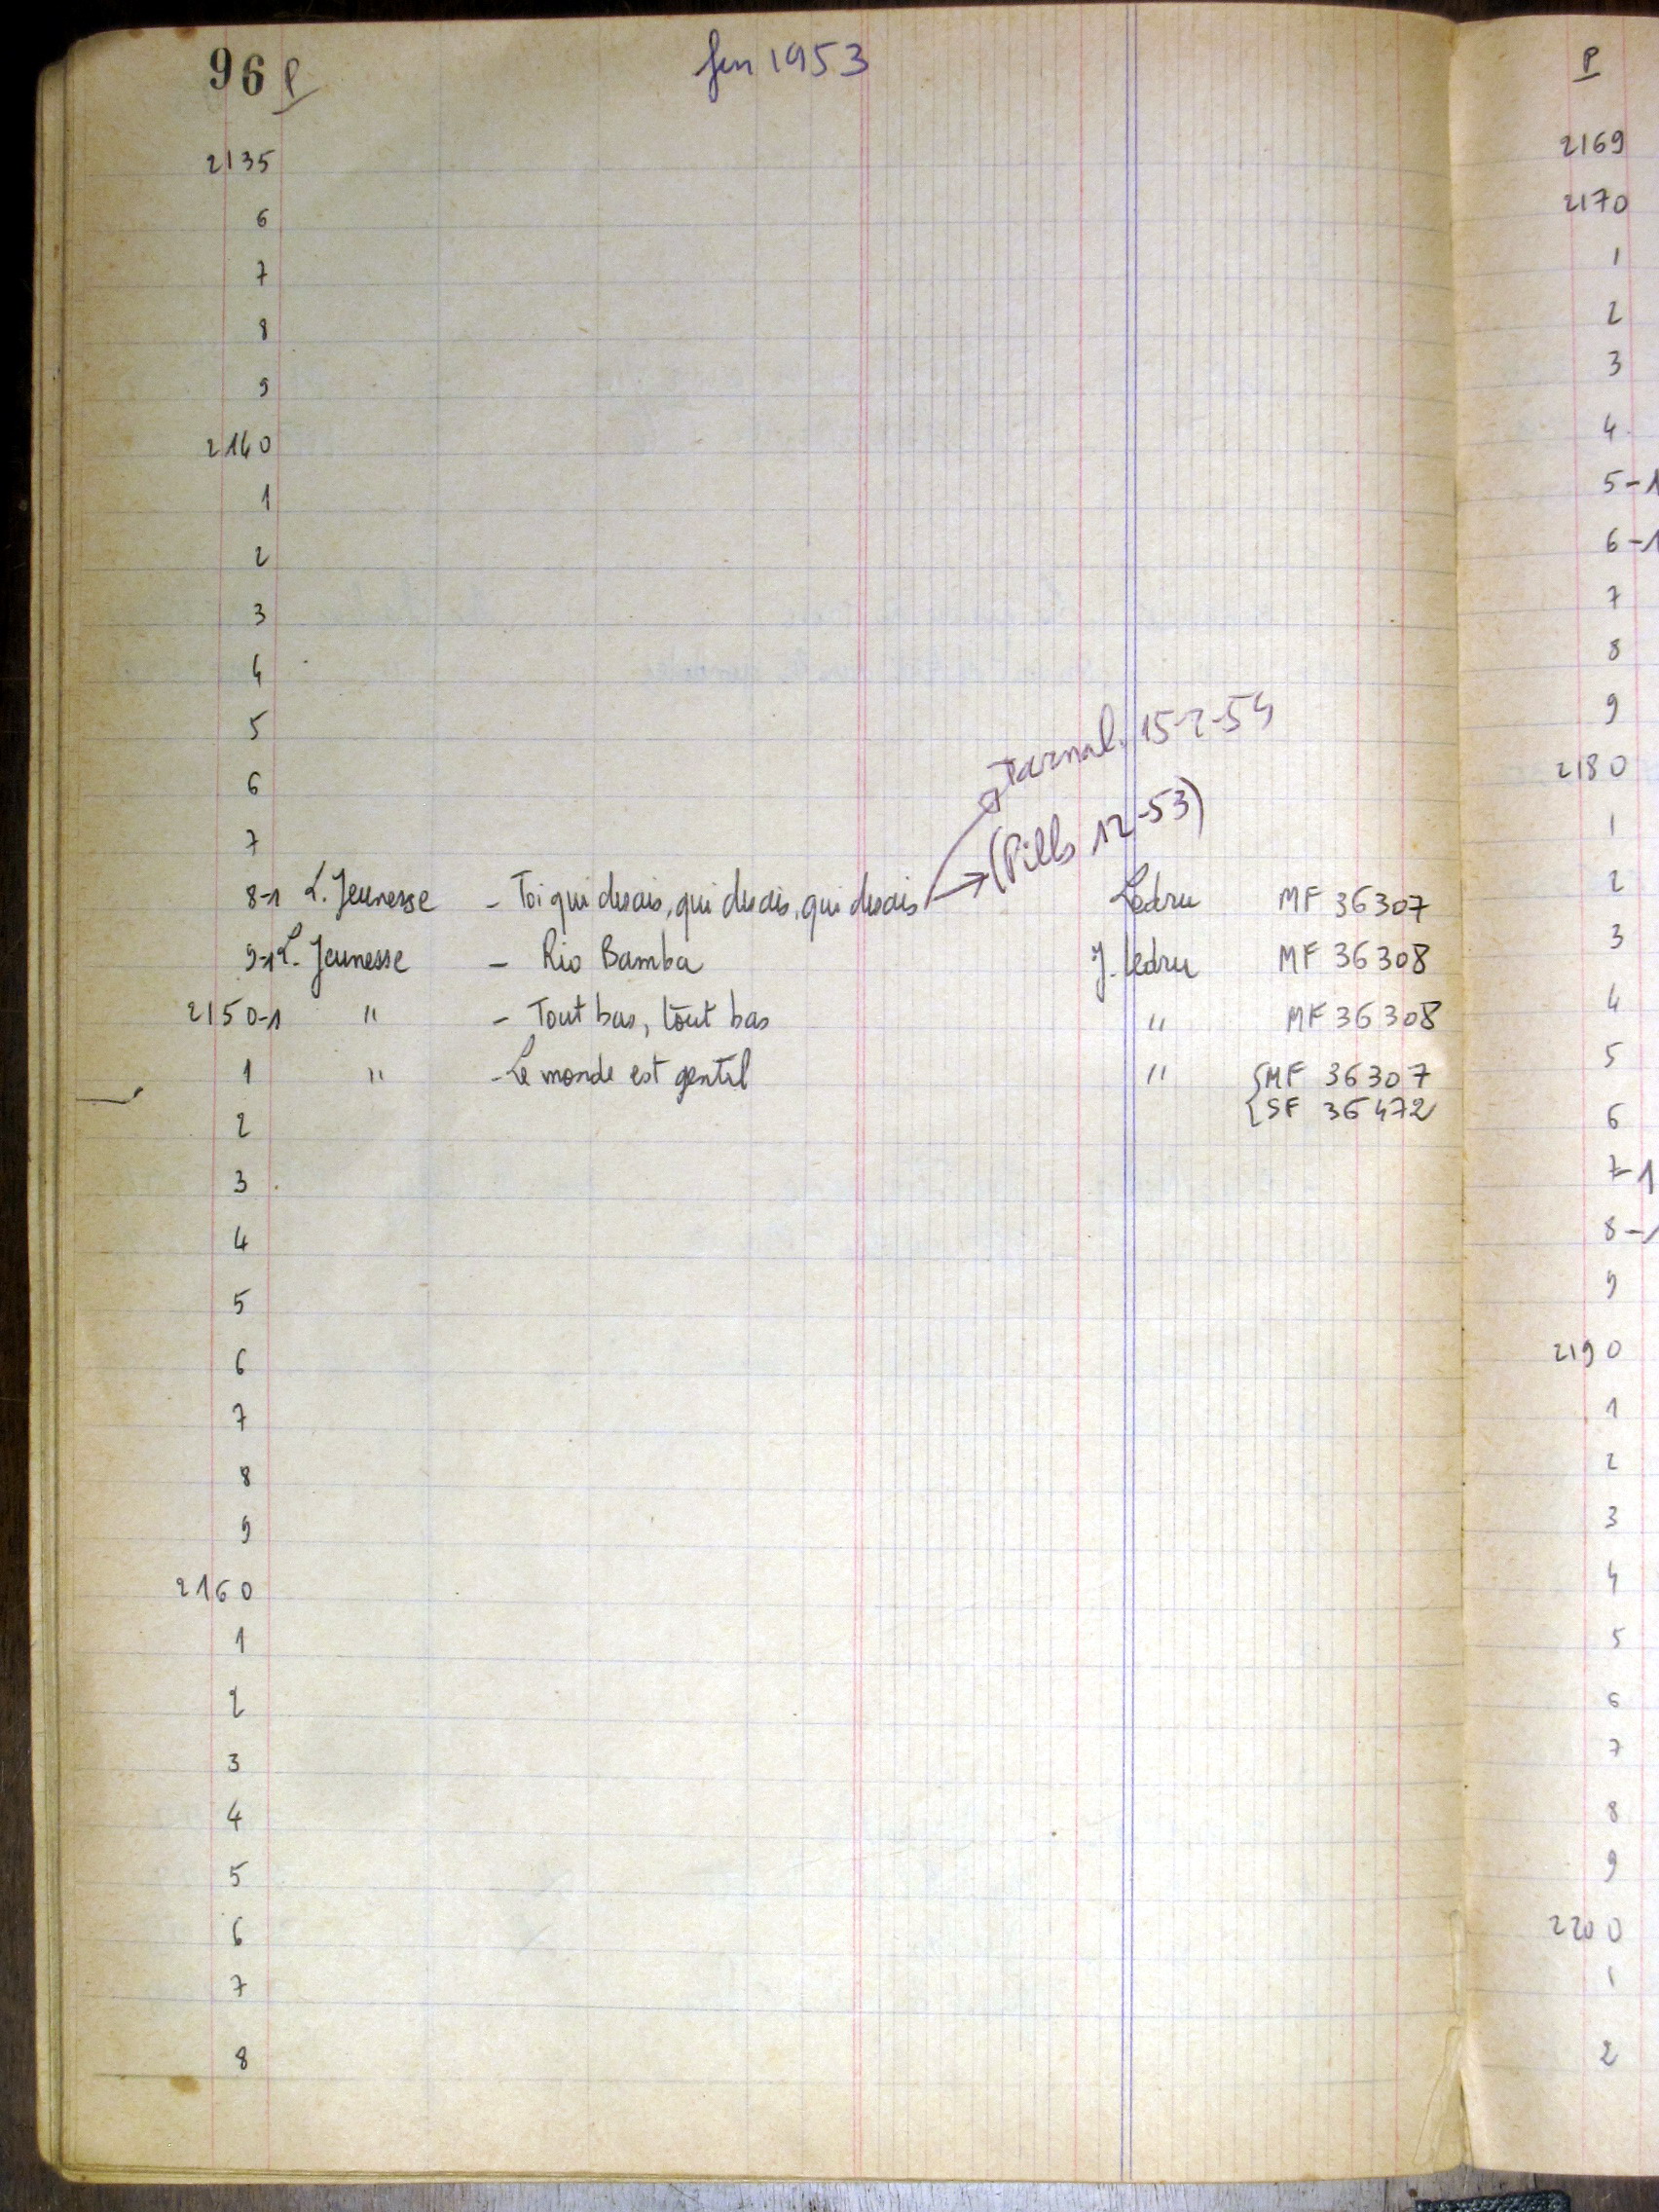 96 P
fin 1953
2135
6
7
8
9
2140
1
2
3
4
5
6
7
Jarnal. 15-2-54
(Pills 12-53)
8-1 L. Jeunesse - Toi qui disais, qui disais, qui disais Ledru MF 36307
9-1 L. Jeunesse - Rio Bamba J. Ledru MF 36308
2150-1 " - Tout bas, tout bas " MF 36308
1 " - Le monde est gentil " { MF 36307
{ SF 36472
2
3
4
5
6
7
8
9
2160
1
2
3
4
5
6
7
8
P
2169
2170
1
2
3
4
5-1
6-1
7
8
9
2180
1
2
3
4
5
6
7-1
8-1
9
2190
1
2
3
4
5
6
7
8
9
2200
1
2